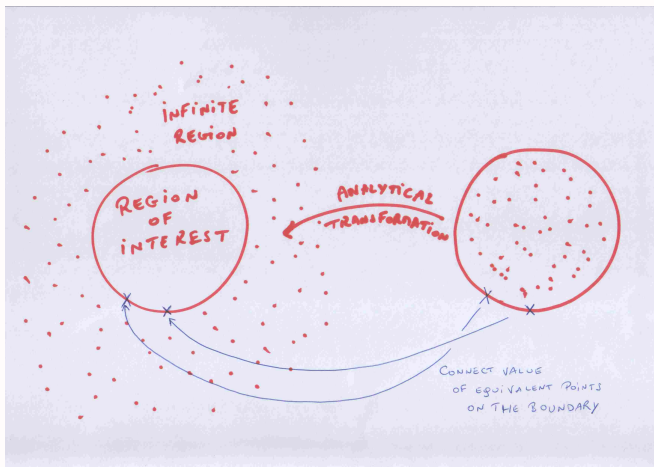 INFINITE
REGION
REGION
OF
INTEREST
ANALYTICAL
TRANSFORMATION
CONNECT VALUE
OF EQUIVALENT POINTS
ON THE BOUNDARY